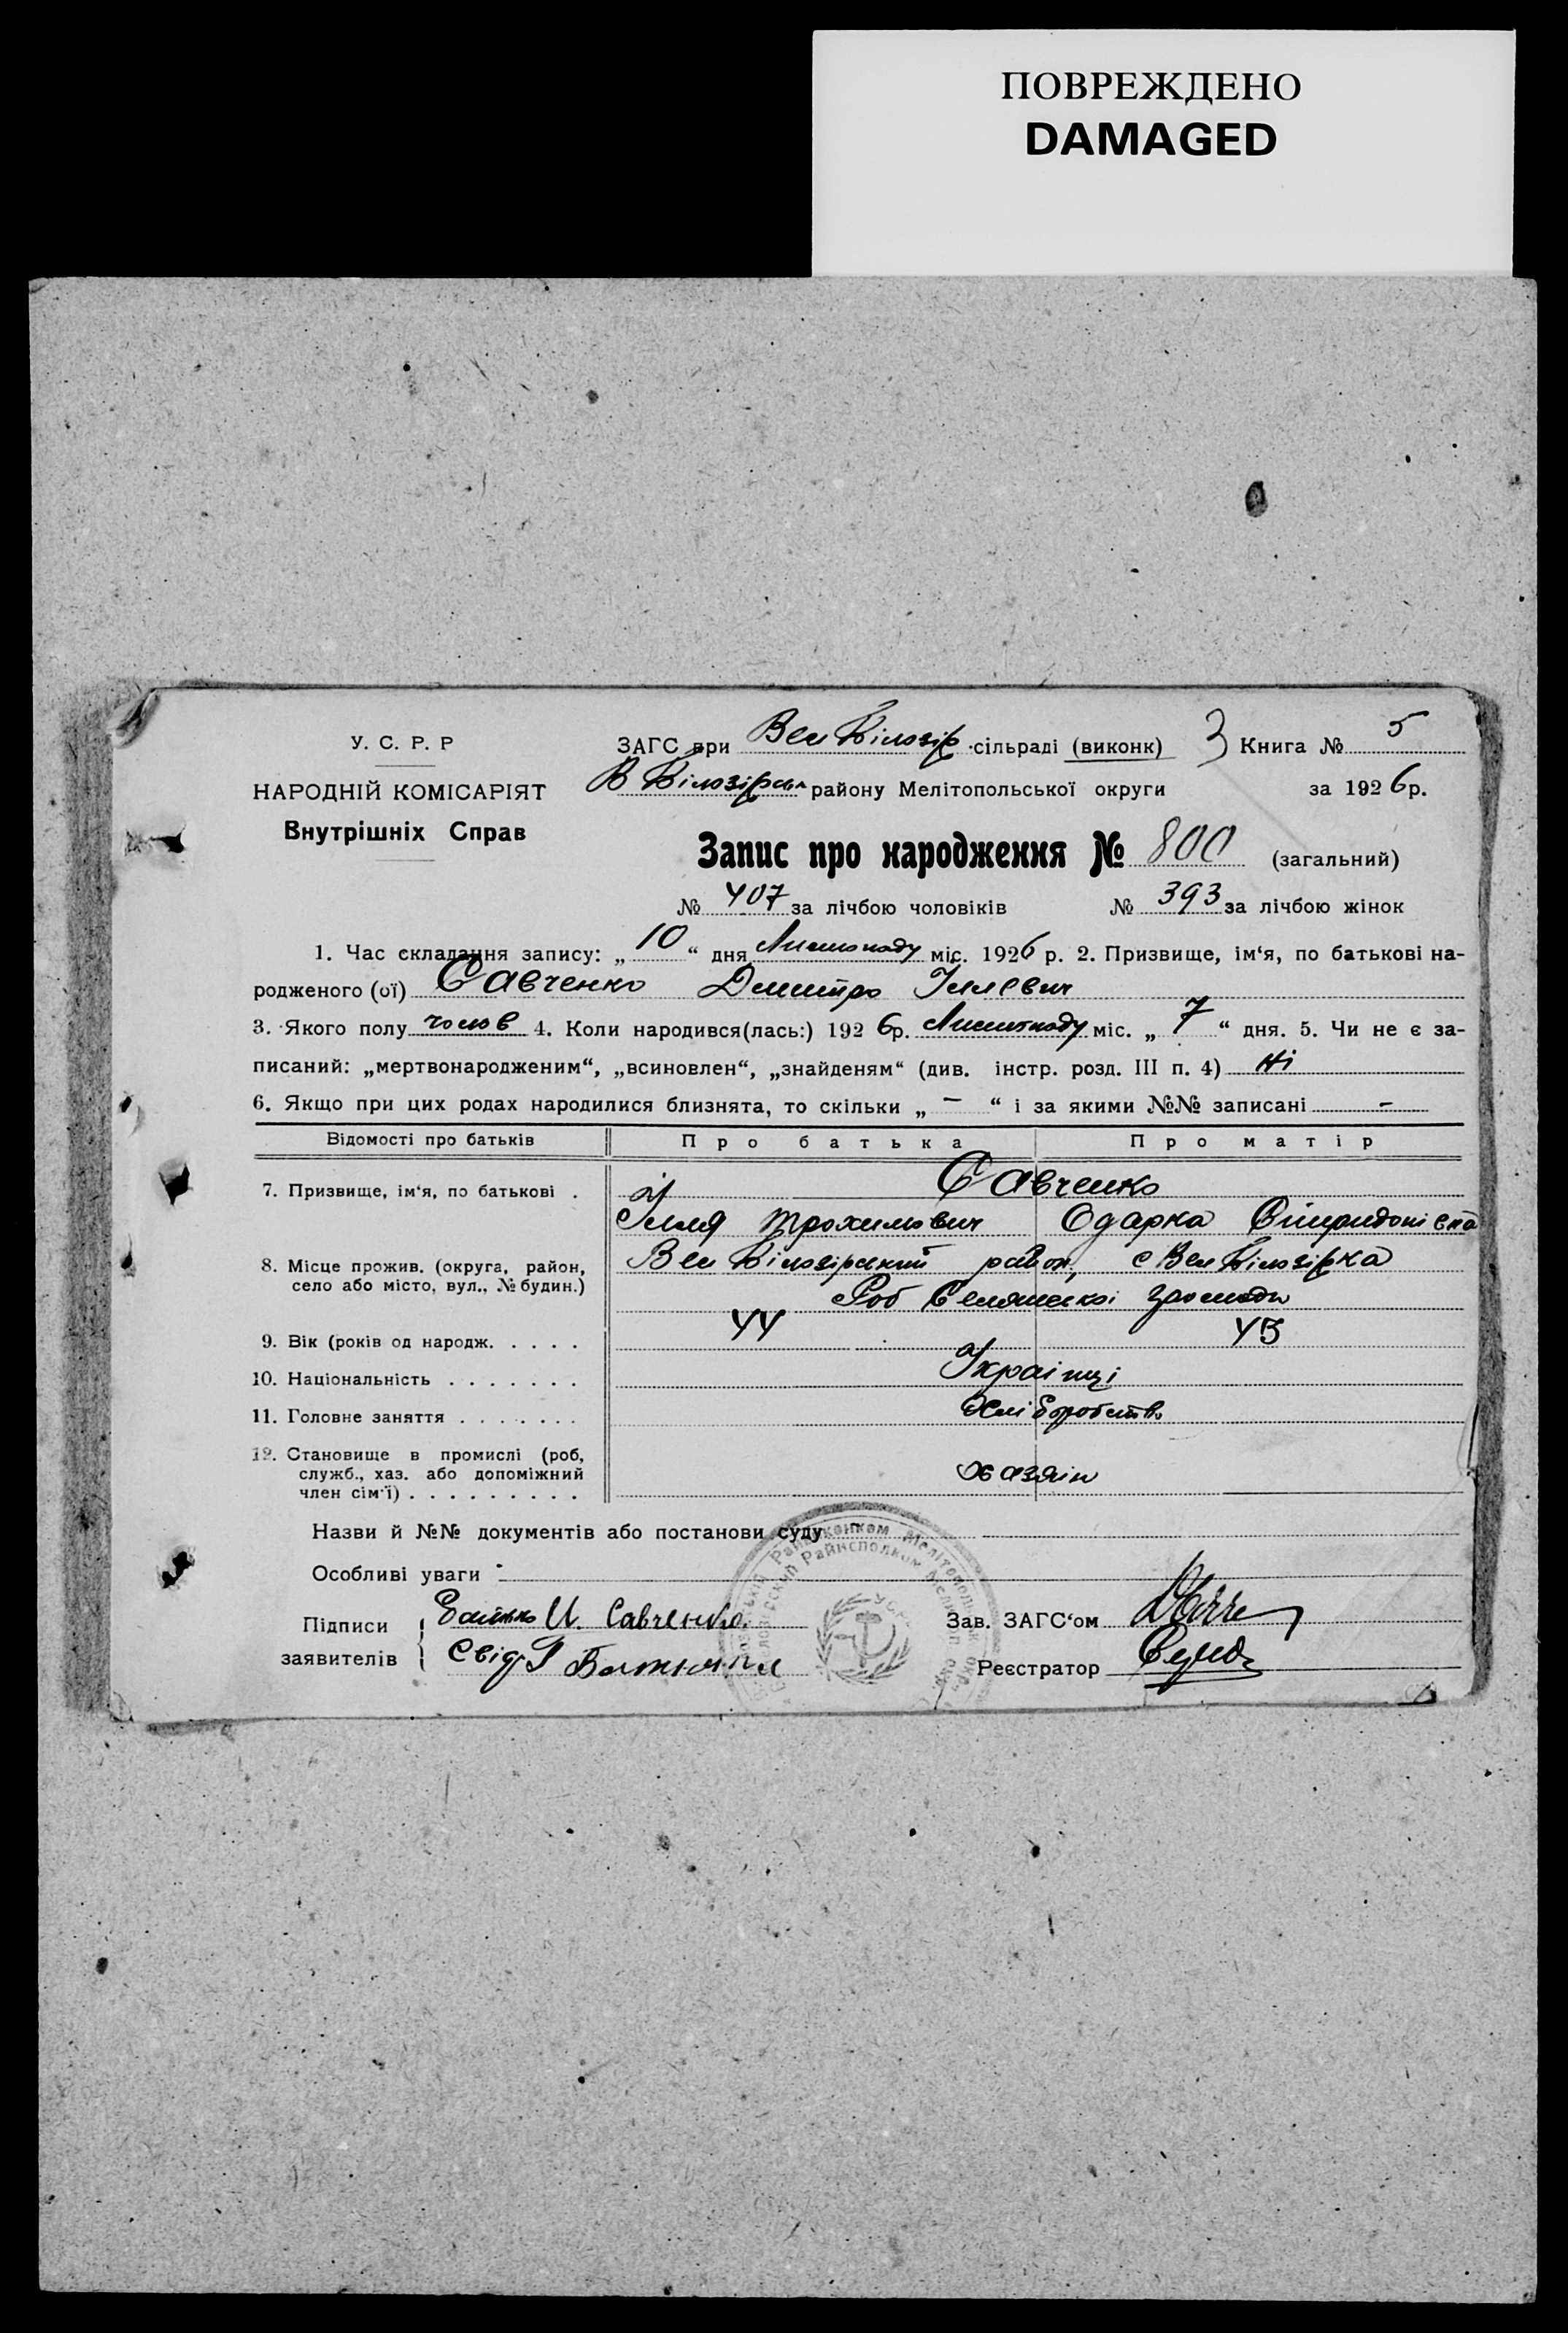 ПОВРЕЖДЕНО
DAMAGED
У. С. Р. Р
НАРОДНІЙ КОМІСАРІЯТ
Внутрішніх Справ
ЗАГС при Вел Білозір сільраді (виконк) 3 Книга № 5
В Білозірськ району Мелітопольської округи за 1926 р.
Запис про народження № 800 (загальний)
№ 407 за лічбою чоловіків № 393 за лічбою жінок
1. Час складання запису: „ 10 “ дня Листопаду міс. 1926 р. 2. Призвище, ім‘я, по батькові на-
родженого (ої) Савченко Дмитро Іллевич
3. Якого полу чолов 4. Коли народився(лась:) 192 6р. Листопаду міс. „ 7 “ дня. 5. Чи не є за-
писаний: „мертвонародженим“, „всиновлен“, „знайденям“ (див. інстр. розд. III п. 4) Ні
6. Якщо при цих родах народилися близнята, то скільки „ – “ і за якими №№ записані –
Відомості про батьків Про батька Про матір
7. Призвище, ім‘я, по батькові . Савченко
Ілля Трохимович Одарка Спиридонівна
8. Місце прожив. (округа, район, Вел Білозірський район, с Вел Білозірка
село або місто, вул., № будин.)
Роб Селянської громади
9. Вік (років од народж. . . . . 44 43
10. Національність . . . . . . . Українці
11. Головне заняття . . . . . . . Хліборобство
12. Становище в промислі (роб,
служб., хаз. або допоміжний хазяін
член сім‘ї) . . . . . . . . .
Назви й №№ документів або постанови суду
Особливі уваги -
Підписи Батько И. Савченко. Зав. ЗАГС‘ом
заявителів Свід. Реєстратор